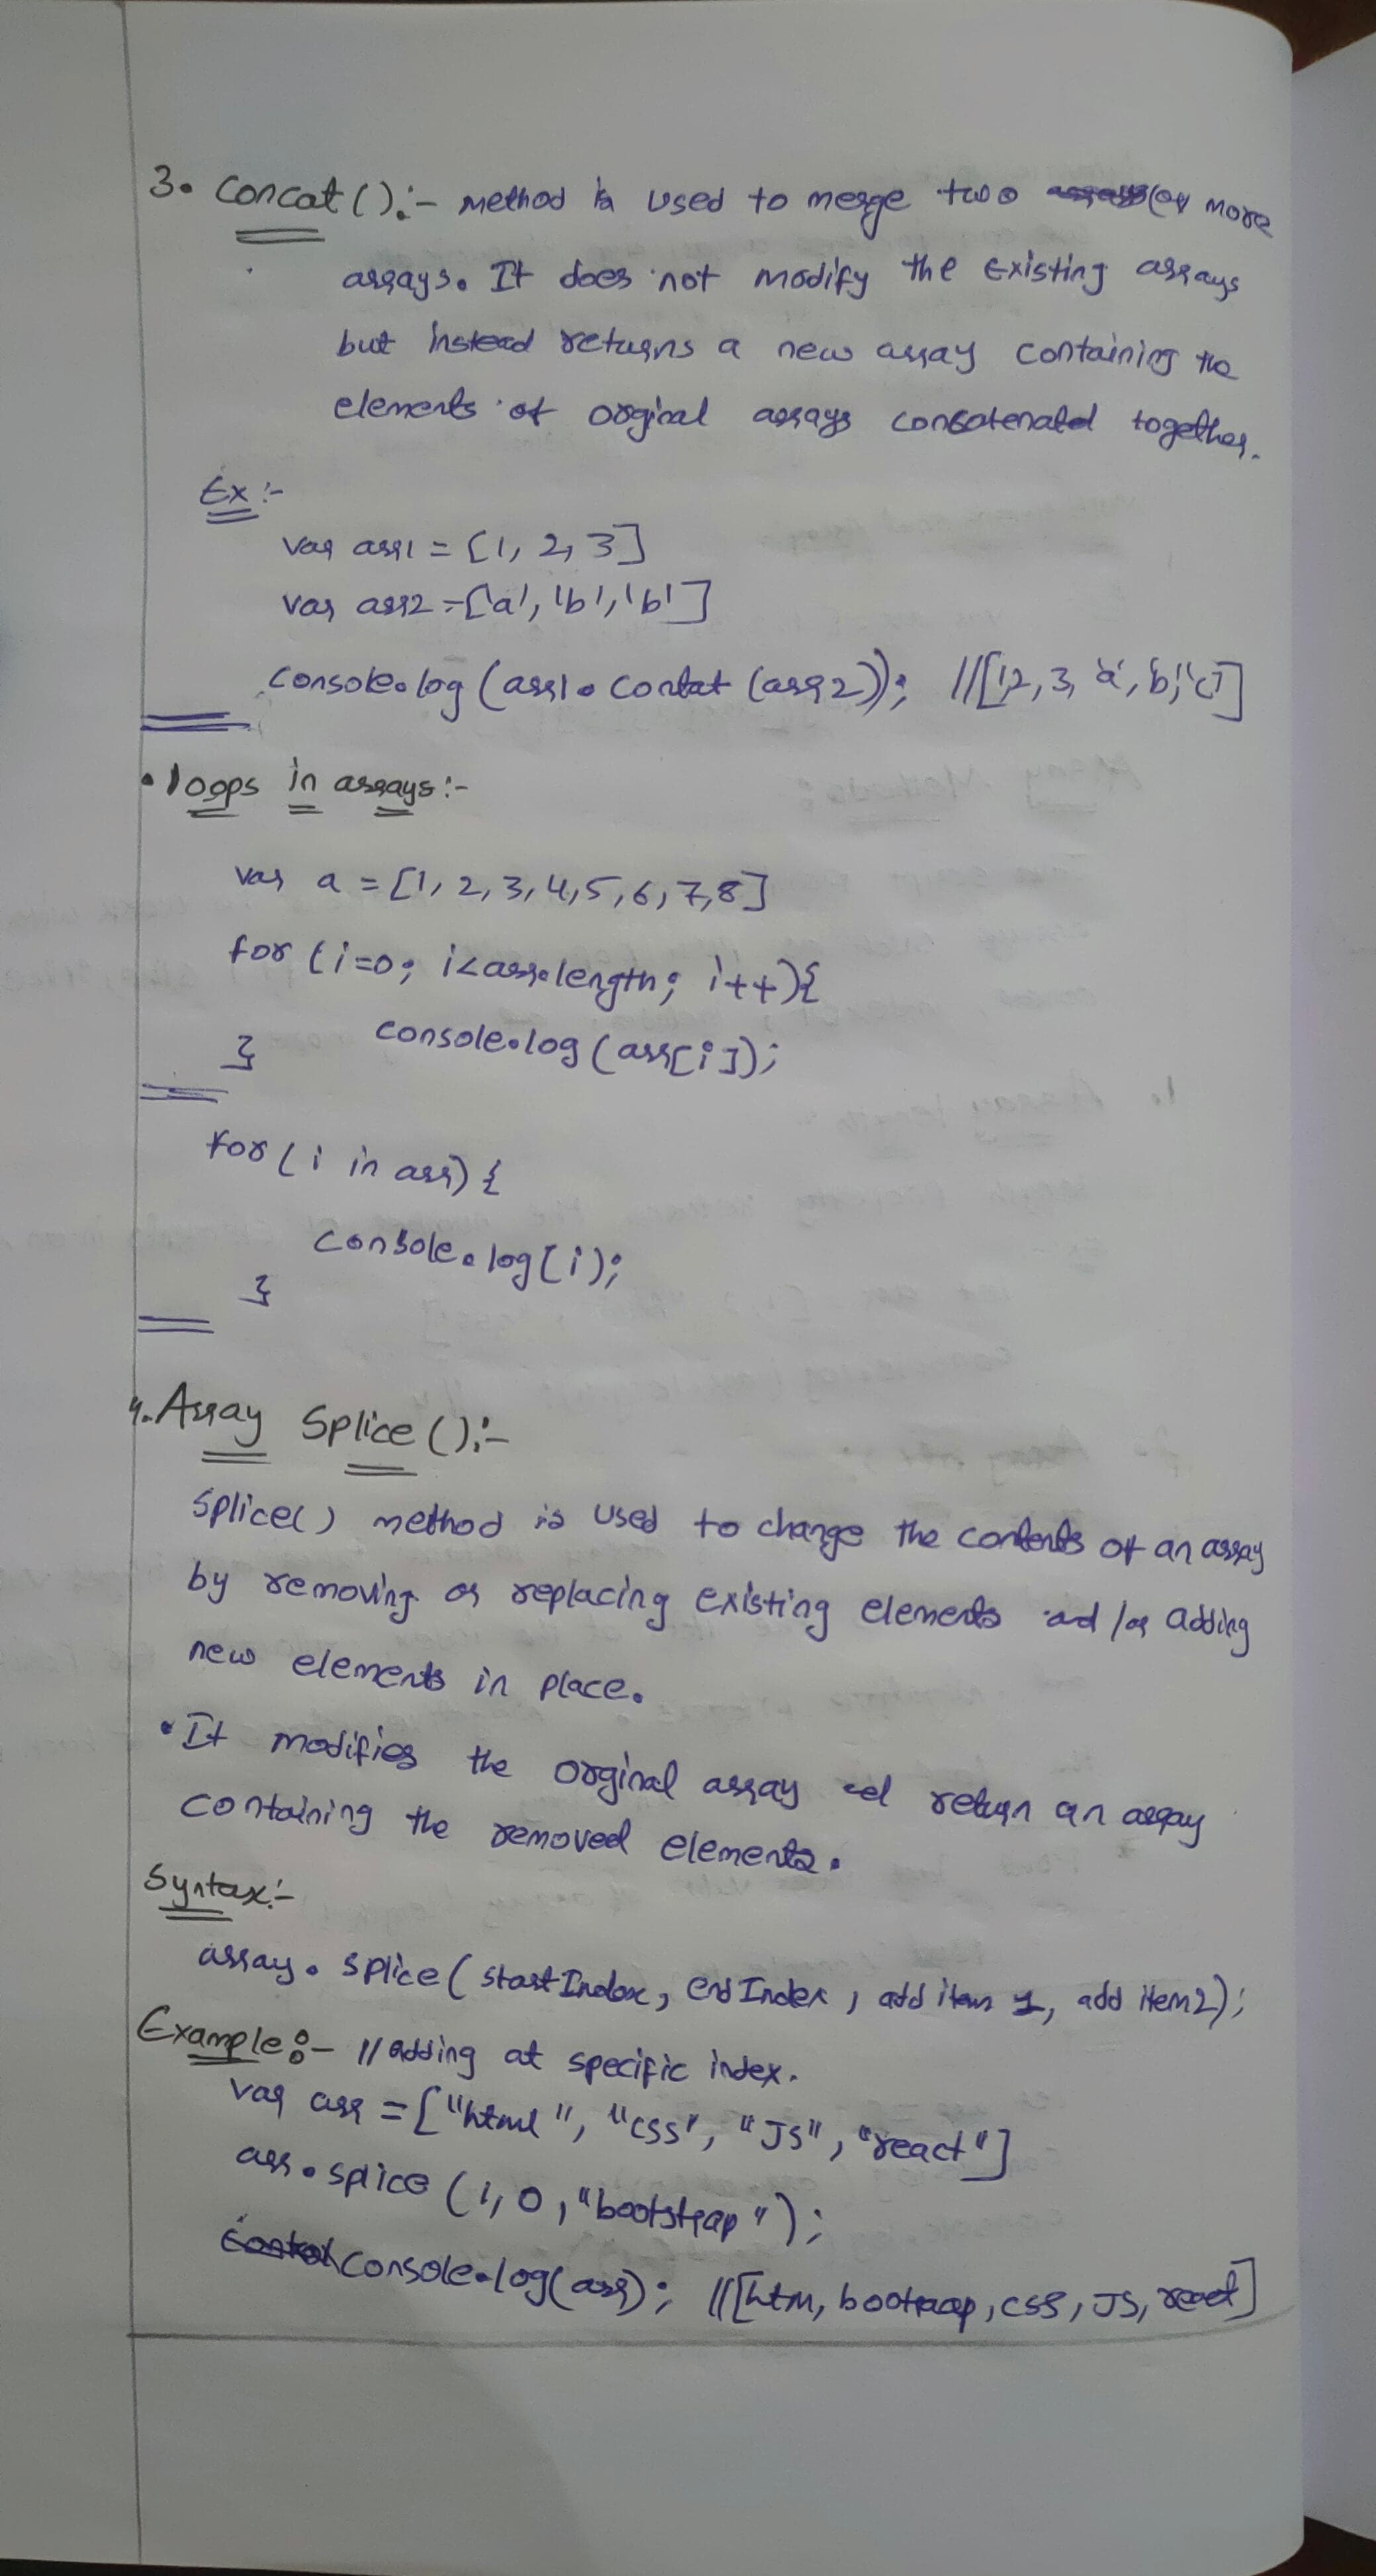 3. Concat():- method is used to merge two (or more
arrays. It does not modify the existing arrays
but instead returns a new array containing the
elements of orginal arrays concatenated together.
Ex:-
var arr1 = [1, 2, 3]
var arr2 = ['a', 'b', 'b']
console.log (arr1.contat (arr2)); //[1,2,3, 'a', 'b', 'c']
• loops in arrays:-
var a = [1, 2, 3, 4, 5, 6, 7, 8]
for (i=0; i<arr.length; i++){
console.log (arr[i]);
}
for (i in arr) {
console.log[i);
}
4. Array Splice():-
Splice() method is used to change the contents of an array
by removing or replacing existing elements and /or adding
new elements in place.
• It modifies the orginal array and return an array
containing the removed elements.
Syntax:-
array.splice( startIndex, endIndex, add item 1, add item2);
Example:- // adding at specific index.
var arr = ["html", "css", "JS", "react"]
arr.splice (1, 0, "bootstrap");
console.log(arr); //[htm, bootraap, css, JS, react]